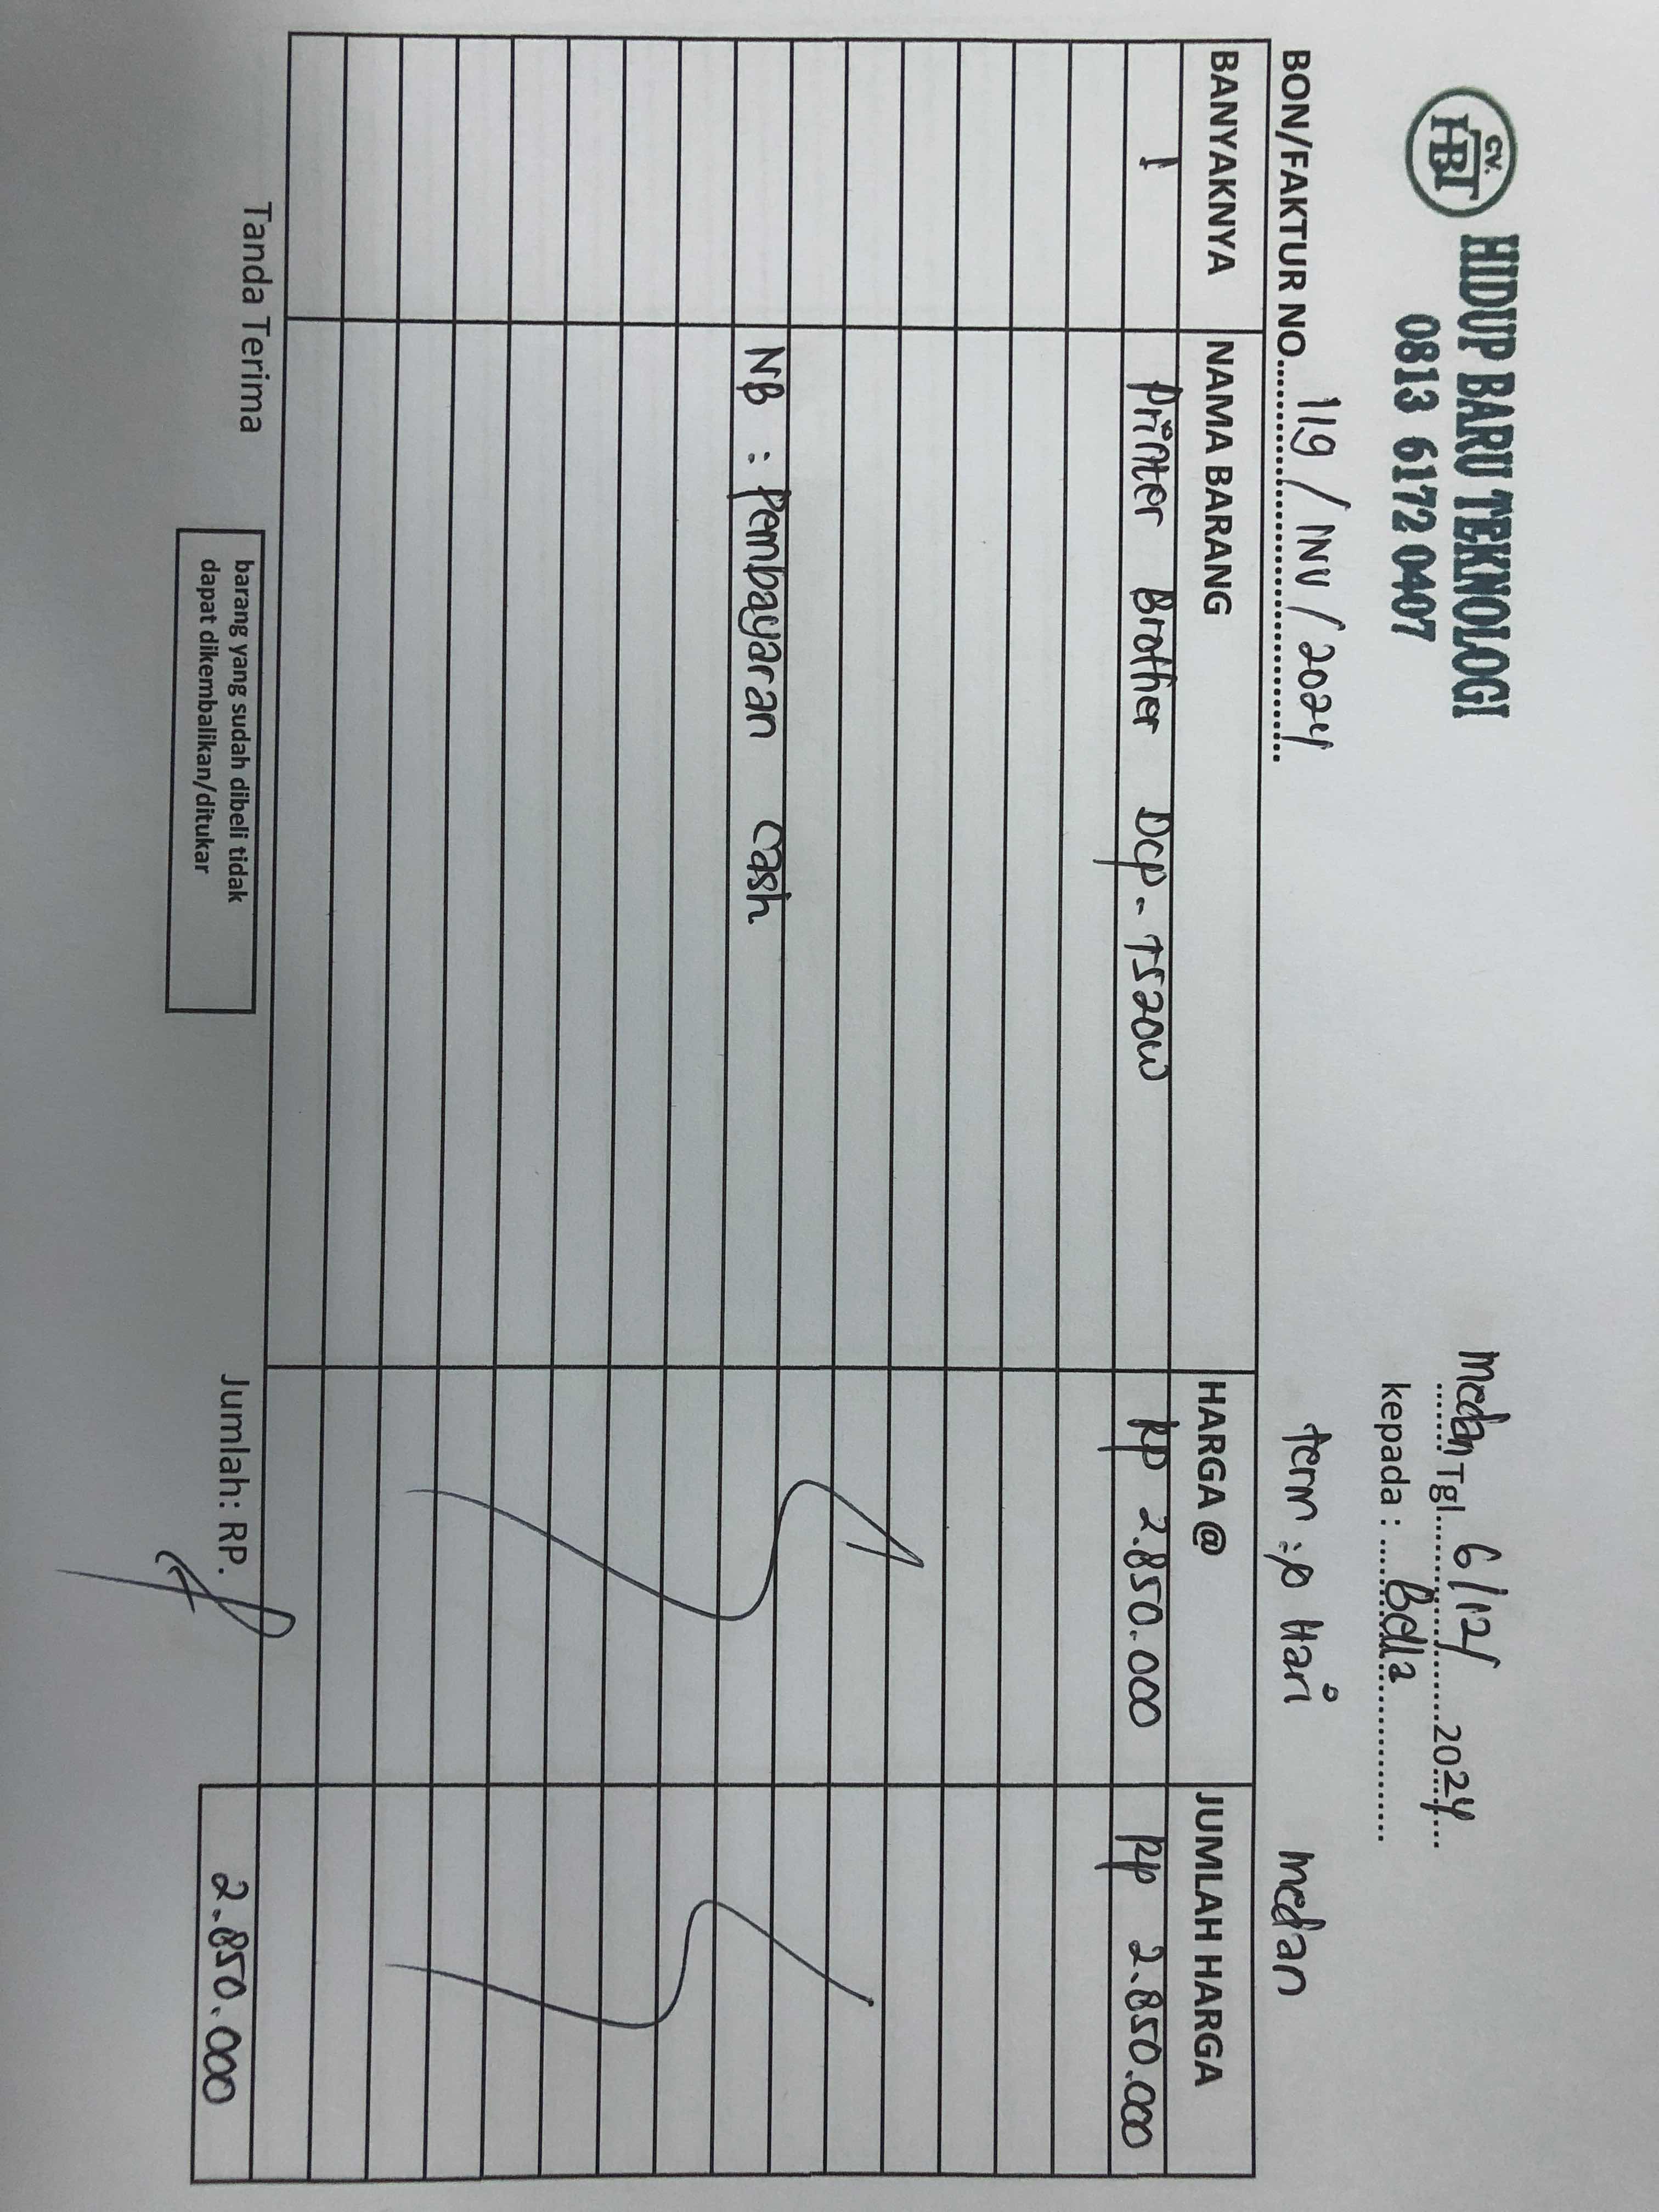 CV.
HBT
HIDUP BARU TEKNOLOGI
0813 6172 0407
Medan Tgl. 6/12/ 2024
kepada : Bella
BON/FAKTUR NO. 119 / INV / 2024
term : 0 Hari Medan
BANYAKNYA NAMA BARANG HARGA @ JUMLAH HARGA
1 Printer Brother Dcp-T520W RP 2.850.000 RP 2.850.000
NB : Pembayaran Cash
Tanda Terima
barang yang sudah dibeli tidak
dapat dikembalikan/ditukar
Jumlah: RP. 2.850.000